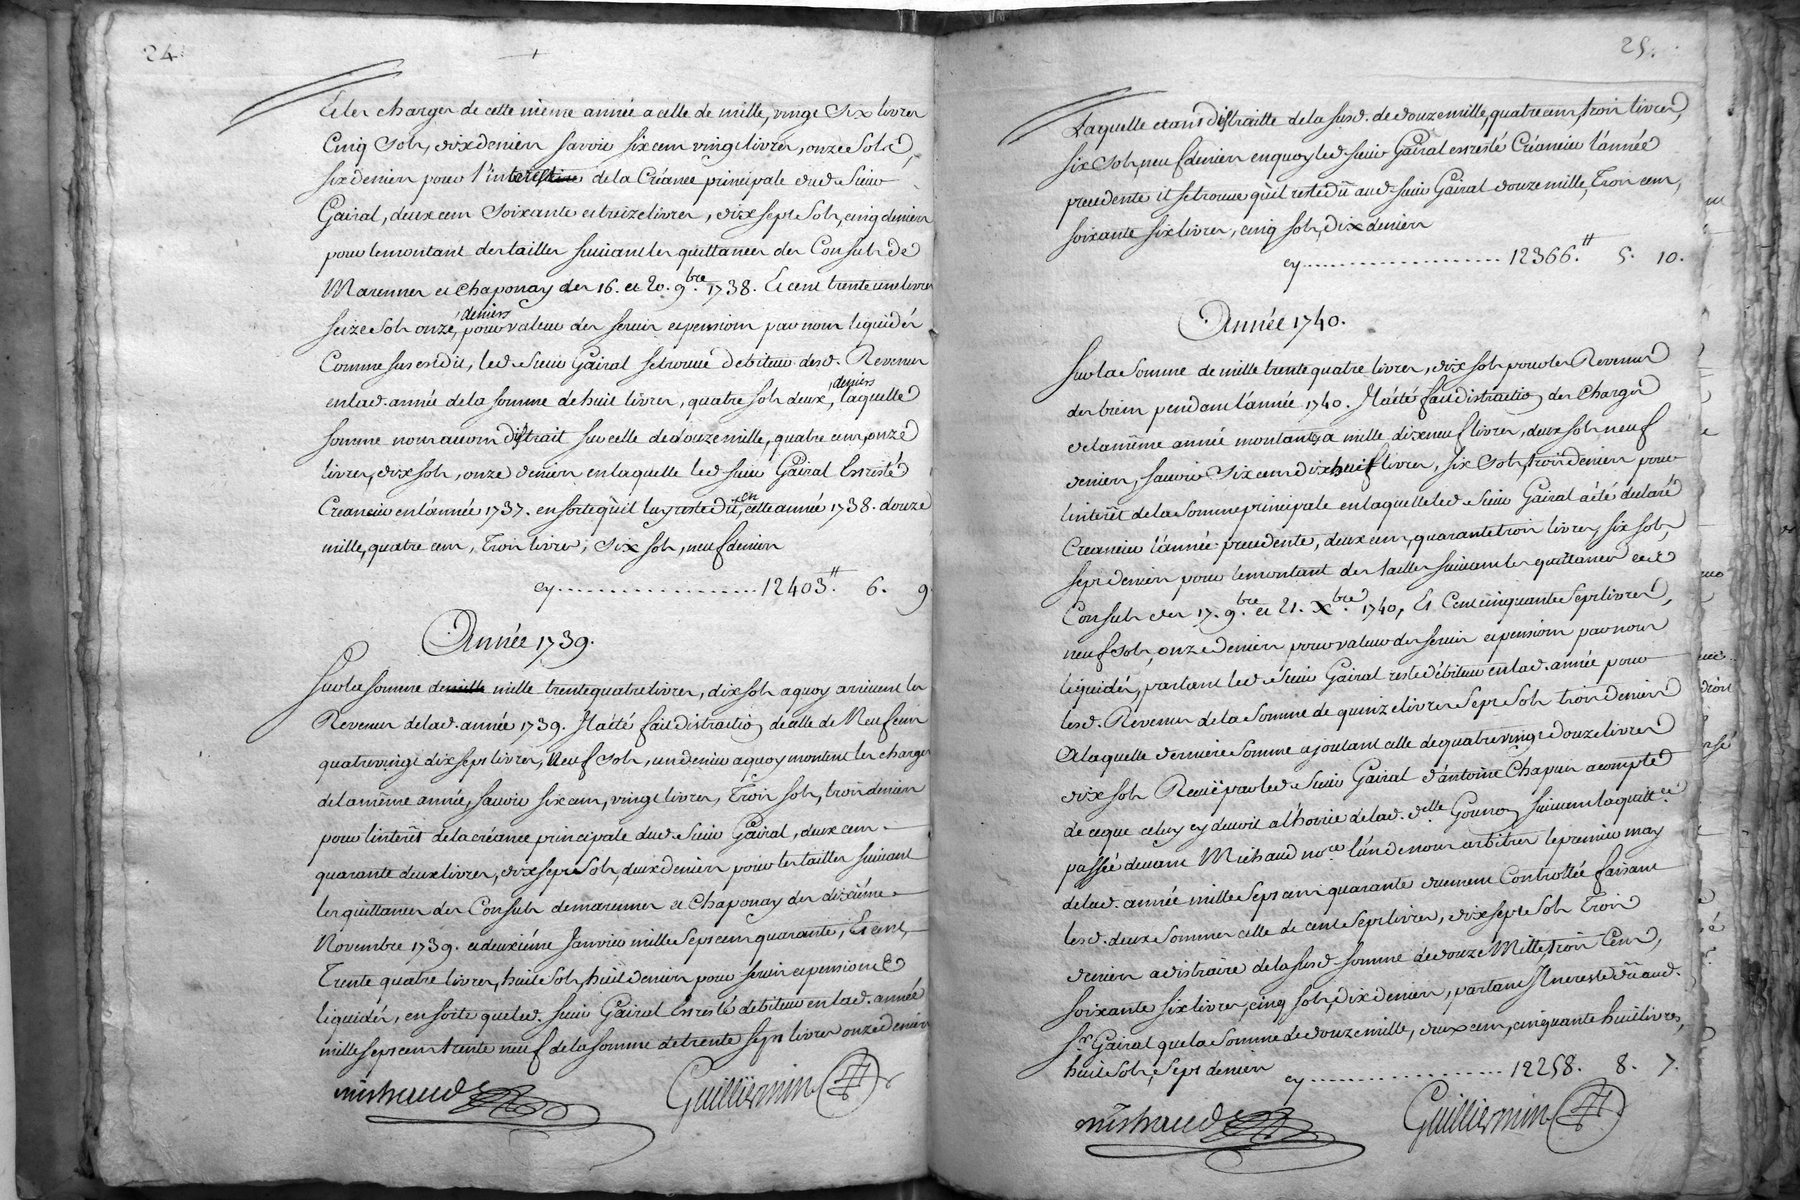 24
Et les charges de cette même année a celle de mille, vingt Six livres
Cinq Sols, dix deniers savoir six cent vingt livres, onze Sols
six deniers pour l'interest de la Créance principale dud. Sieur
Gairal, deux cent Soixante et treize livres, dix sept Sols, cinq deniers
pour le montant des tailles suivant les quittances des Consuls de
Marennes et Chaponay des 16. et 20. 9.bre 1738. Et cent trente une livres
seize Sols onze, deniers pour valeur des servis et pensions par nous liquidés
Comme sus est dit, led. Sieur Gairal se trouve débiteur desd. Revenus
en lad. année de la somme de huit livres, quatre sols deux, deniers laquelle
somme nous avons distrait sur celle de douze mille, quatre cent, onze
livres, dix sols, onze deniers en laquelle led. sieur Gairal Est resté
Creancier en l'année 1737. en sorte qu'il luy reste dû, en cette année 1738. douze
mille, quatre cent, Trois livres, Six sols, neuf deniers
cy.................... 12403.ᵗᵗ 6. 9.
Année 1739.
Sur la somme de mille trente quatre livres, dix sols a quoy arrivent les
Revenus de lad. année 1739. Il a été fait distraction de celle de Neuf cent
quatre vingt dix sept livres, Neuf Sols, un denier a quoy montent les charges
de la même année, savoir six cent, vingt livres, Trois sols, trois deniers
pour l'interêt de la créance principale dud. Sieur Gairal, deux cent
quarante deux livres, dix sept Sols, deux deniers pour les tailles suivant
les quittances des Consuls de marennes et Chaponay des dixiéme
Novembre 1739. et deuxiéme Janvier mille Sept cent quarante, Et cent,
Trente quatre livres, huit Sols, huit deniers pour servis et pensions
liquidés, en sorte que led. sieur Gairal Est resté débiteur en lad. année
mille sept cent trente neuf de la somme de trente sept livres onze deniers
michaud Guilliermin
25.
Laquelle etant distraitte de la susd. de douze mille, quatre cent, trois livres,
six Sols, neuf deniers en quoy led. sieur Gairal est resté Créancier l'année
precedente il se trouve qu'il reste dû aud. sieur Gairal douze mille, Trois cent,
soixante six livres, cinq sols, dix deniers
cy.................... 12366.ᵗᵗ 5. 10.
Année 1740.
Sur la Somme de mille trente quatre livres, dix sols pour les Revenus
des biens pendant l'année 1740. Il a été fait distraction des Charges
de la même année montant a mille dix neuf livres, deux sols neuf
deniers, savoir Six cent dix huit livres, six Sols, trois deniers pour
l'interêt de la Somme principale en laquelle led. Sieur Gairal a été declaré
Creancier l'année precedente, deux cent, quarante trois livres, six sols,
sept deniers pour le montant des tailles suivant les quittances desd.
Consuls des 17. 9.bre et 21. Xbre. 1740, Et Cent cinquante Sept livres,
neuf Sols, onze deniers pour valeur des servis et pensions par nous
liquidés, partant led. Sieur Gairal reste débiteur en lad. année pour
lesd. Revenus de la Somme de quinze livres Sept Sols trois deniers
A laquelle derniere Somme ajoutant celle de quatre vingt douze livres
dix sols Receüe par led. Sieur Gairal d'antoine Chapuis a compte
de ce que celuy cy devoit a l'hoirie de lad. d.elle Gounon suivant la quitt.ce
passée devant Michaud no.re l'un de nous arbitres le premier may
de lad. année mille Sept cent quarante duement Controllée faisant
lesd. deux Sommes celle de cent Sept livres, dix sept Sols Trois
deniers a distraire de la susd. somme de douze Mille, trois Cent,
soixante six livres, cinq sols, dix deniers, partant Il ne reste dû aud.
Sr. Gairal que la Somme de douze mille, deux cent, cinquante huit livres,
huit Sols, Sept deniers cy.................... 12258. 8. 7.
michaud Guilliermin